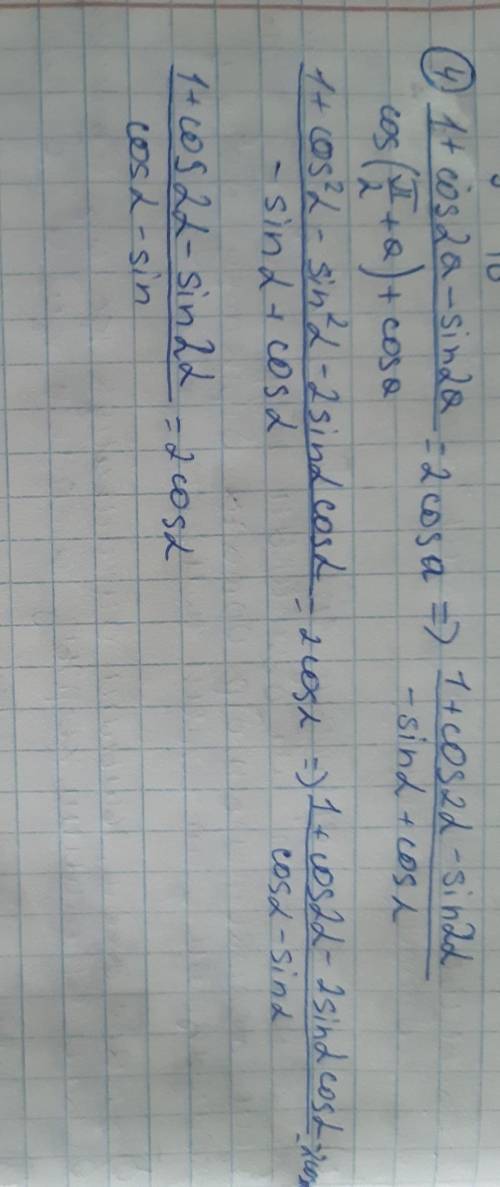 ④ (1 + cos2a - sin2a) / (cos(π/2 + a) + cosa) = 2cosa => (1 + cos2α - sin2α) / (-sinα + cosα)
(1 + cos²α - sin²α - 2sinαcosα) / (-sinα + cosα) = 2cosα => (1 + cos2α - 2sinαcosα) / (cosα - sinα)
(1 + cos2α - sin2α) / (cosα - sin) = 2cosα